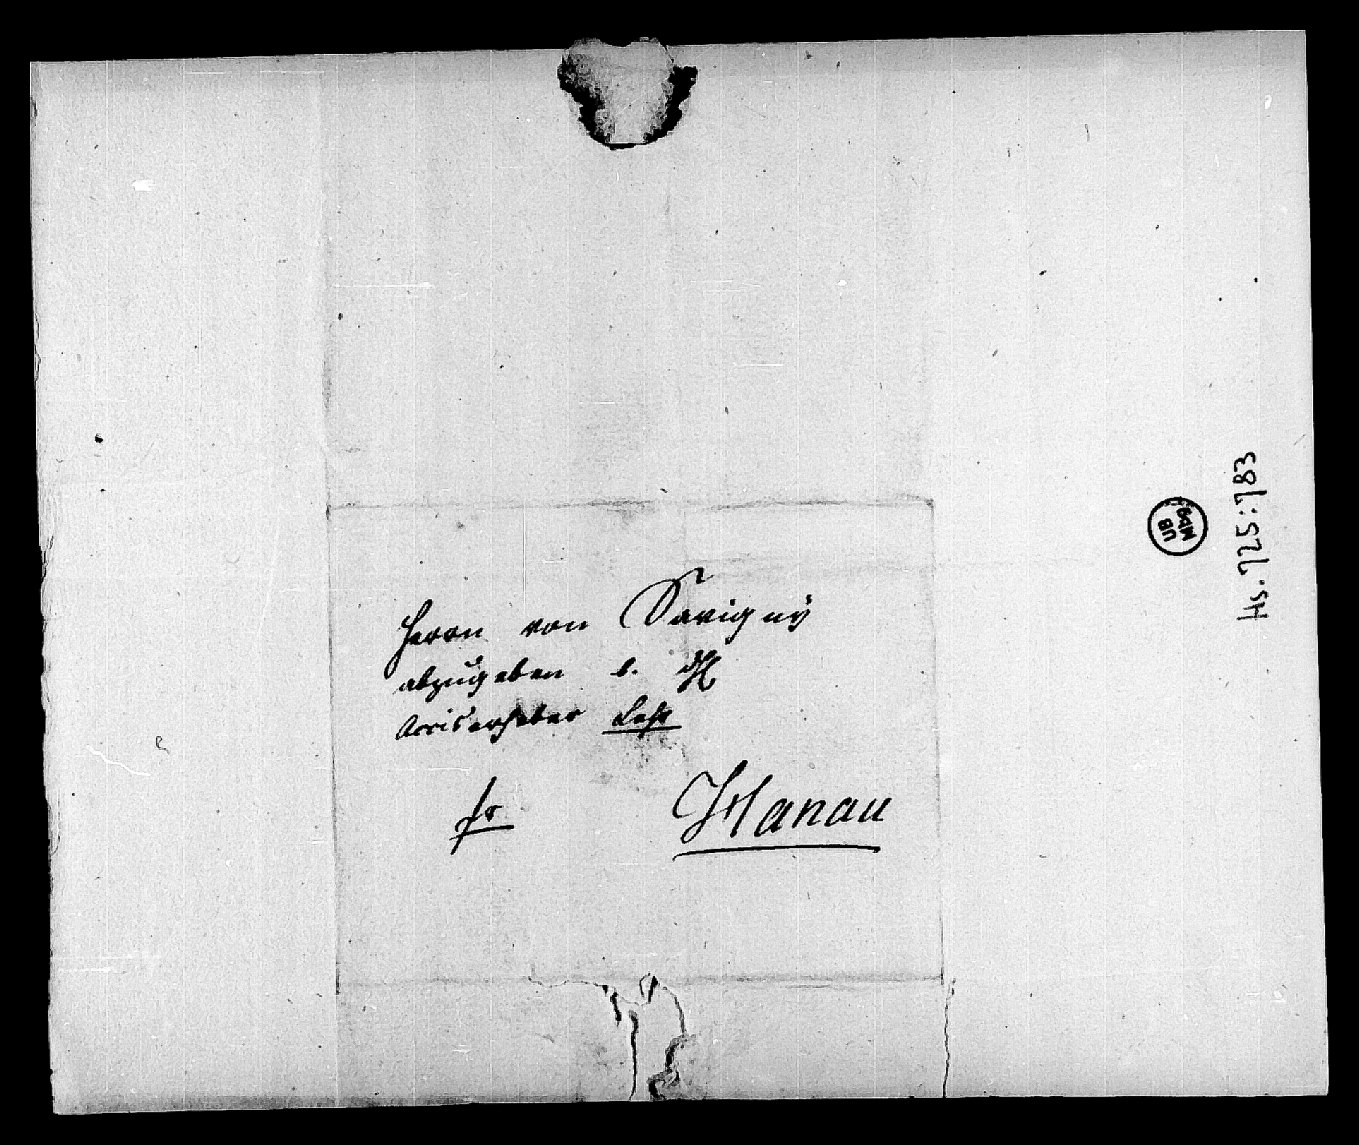 Herrn von Savigny
abzugeben b. H
Acciserheber Lehr
fr
Hanau
Hs. 725:783
UB
MBG